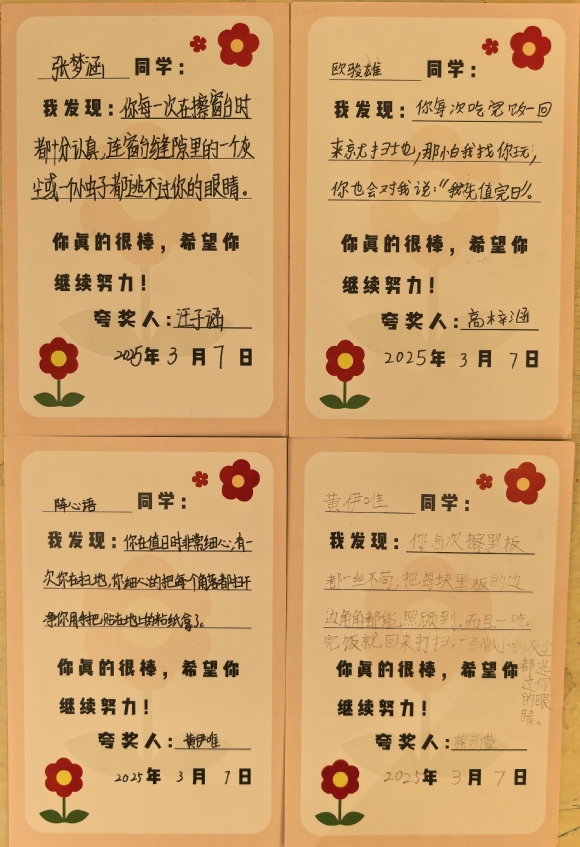 张梦涵 同学：
我发现：你每一次在擦窗台时
都十分认真，连窗台缝隙里的一个灰
尘或一个小虫子都逃不过你的眼睛。
你真的很棒，希望你
继续努力！
夸奖人：汪子涵
2025年 3 月 7 日
欧骏雄 同学：
我发现：你每次吃完饭一回
来就扫地，那怕我找你玩，
你也会对我说：“我先值完日”。
你真的很棒，希望你
继续努力！
夸奖人：高梓涵
2025年 3 月 7 日
陈心语 同学：
我发现：你在值日时非常细心，有一
次你在扫地，你细心的把每个角落都扫干
净你用手把贴在地上的粘纸拿了。
你真的很棒，希望你
继续努力！
夸奖人：黄伊唯
2025年 3 月 7 日
黄伊唯 同学：
我发现：你每次擦黑板
都一丝不苟，把每块黑板的边
边角角都能照顾到，而且一吃
完饭就回来打扫，一点微小的灰尘
都逃
过你
的眼
睛。
你真的很棒，希望你
继续努力！
夸奖人：
2025年 3 月 7 日